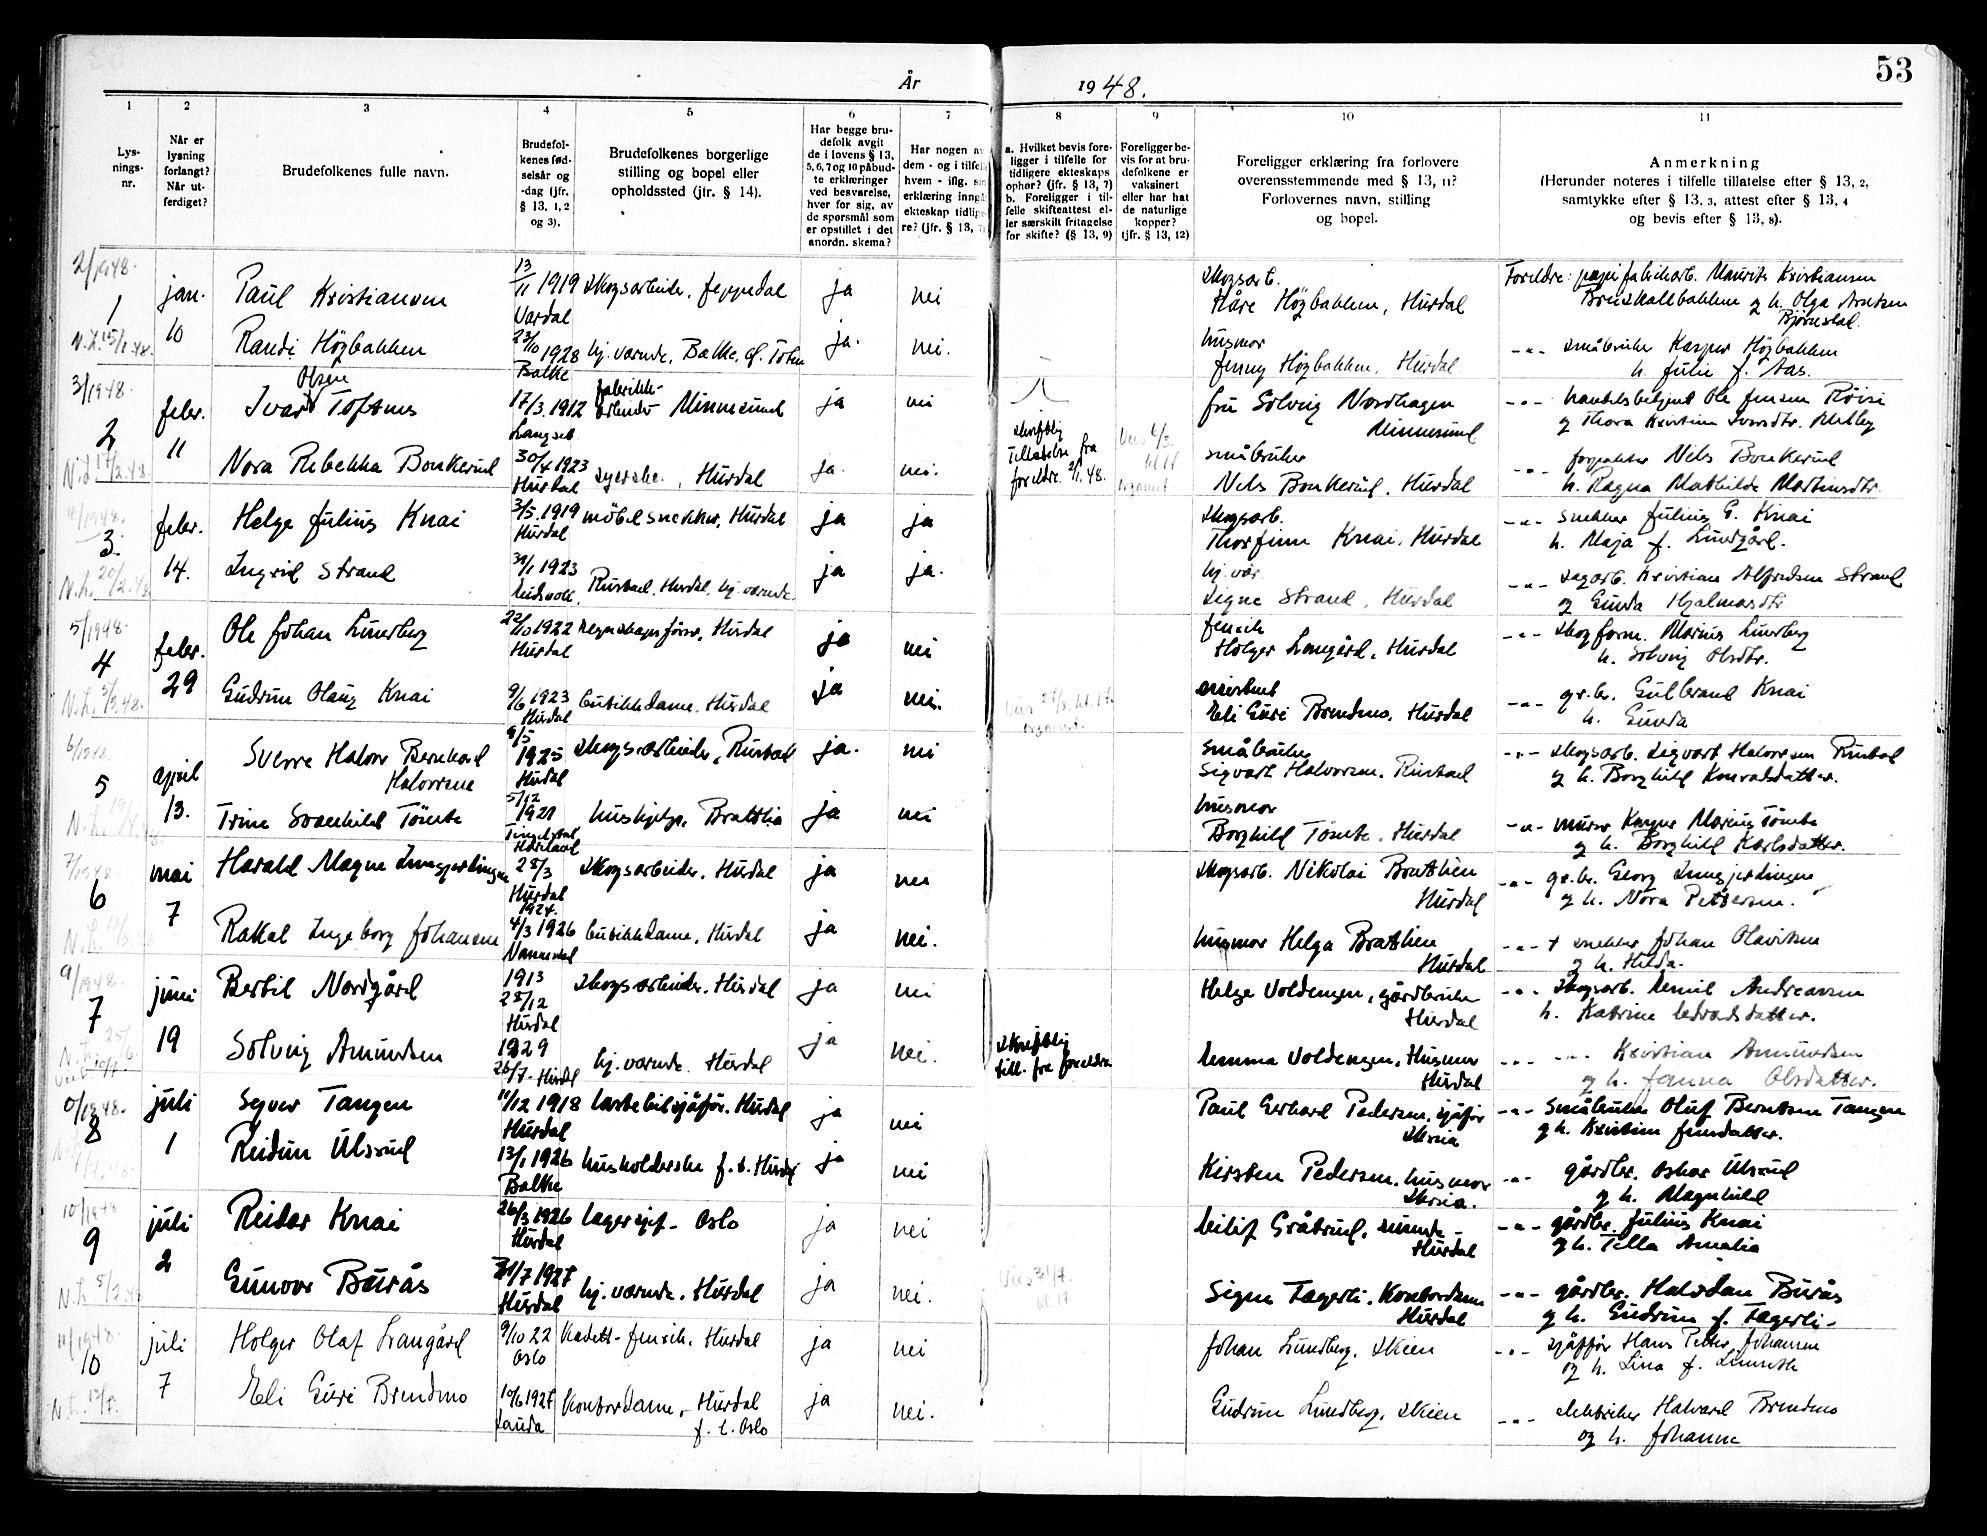 53
År 1948.
1 2 3 4 5 6 7 8 9 10 11
Lysningsnr.
Når er lysning forlangt? Når utferdiget?
Brudefolkenes fulle navn.
Brudefolkenes fødselsår og -dag (jfr. § 13, 1, 2 og 3).
Brudefolkenes borgerlige stilling og bopel eller opholdssted (jfr. § 14).
Har begge brudefolk avgit de i lovens § 13, 5, 6, 7 og 10 påbudte erklæringer ved besvarelse, hver for sig, av de spørsmål som er opstillet i det anordn. skema?
Har nogen av dem - og i tilfelle hvem - iflg. sin erklæring inngå ekteskap tidligere? (jfr. § 13, 7)
a. Hvilket bevis foreligger i tilfelle for tidligere ekteskaps ophør? (jfr. § 13, 7)
b. Foreligger i tilfelle skifteattest eller særskilt fritagelse for skifte? (§ 13, 9)
Foreligger bevis for at brudefolkene er vaksinert eller har hat de naturlige kopper? (jfr. § 13, 12)
Foreligger erklæring fra forlovere overensstemmende med § 13, 11? Forlovernes navn, stilling og bopel.
Anmerkning
(Herunder noteres i tilfelle tillatelse efter § 13, 2, samtykke efter § 13, 3, attest efter § 13, 4 og bevis efter § 13, 8).
2/1948. 1 jan. Paul Kristiansen 13/11 1919 Vardal skogsarbeider, Jeppedal ja nei skogsarb. Kåre Høgbakken, Hurdal Foreldre: papirfabrikarb. Maurits Kristiansen Bruskallbakken og h. Olga Bjørnstad.
N.L. 15/1 48. 10 Randi Høgbakken 23/10 1928 Balke hj. værende, Balke, Ø. Toten ja. nei. husmor Jenny Høgbakken, Hurdal -"- småbruker Kasper Høgbakken h. Julie f. Aas.
3/1948. 2 febr. Ivar Olsen Tofsnes 17/3. 1912 Langset fabrikkarbeider Minnesund ja nei fru Solveig Nordhagen Minnesund -"- handelsbetjent Ole Jensen Røisi og Thora Kristine Ivarsdtr. Melby
N.L. 17/2.48. 11 Nora Rebekka Bonkerud 30/4 1923 Hurdal syerske, Hurdal ja. nei. skriftlig Tillatelse fra foreldre 2/1.48. småbruker Nils Bonkerud, Hurdal -"- forpakter Nils Bonkerud h. Ragna Mathilde Martinsdtr.
4/1948. 3. febr. Helge Julius Knai 3/5. 1919 Hurdal møbelsnekker, Hurdal ja ja skogsarb. Thorfinn Knai, Hurdal -"- snekker Julius G. Knai h. Maja f. Lundgård.
N.L. 20/2.48 14. Ingrid Strand 1923 Eidsvoll, Rustad, Hurdal, hj. værende ja ja. hj. vær. Signe Strand, Hurdal -"- sagarb. Kristian Alfredsen Strand og Gunda Hjalmarsdtr
5/1948. 4 febr. Ole Johan Lundberg 22/10 1922 Hurdal regnskapsfører, Hurdal ja nei fenrik Holger Langård, Hurdal -"- skogform. Marius Lundberg h. Solveig Olsdtr.
N.L. 5/3.48. 29 Gudrun Olaug Knai 9/6 1923 Hurdal butikkdame, Hurdal ja nei. Eli Guri Brendmo, Hurdal -"- g.br. Gulbrand Knai h. Gunda
6/1948. 5 april Sverre Halvor Bernhard Halvorsen 9/5 1925 Hurdal skogsarbeider, Rustad ja. nei småbruker Sigvart Halvorsen, Rustad -"- skogsarb. Sigvart Halvorsen Rustad og h. Borghild Konradsdatter.
N.L. 13. Trine Svanhild Tømte 5/12 Hærland hushjelp, Bråtlia ja nei husmor Borghild Tømte, Hurdal -"- murer Kasper Marius Tømte og h. Borghild Karlsdatter.
7/1948 6 mai Harald Magne Lundgjerdingen 28/3 Hurdal 1924. skogsarbeider, Hurdal ja nei skogsarb. Nikolai Bråthen Hurdal -"- g.br. Georg Lundgjerdingen og h. Nora Pettersen.
N.L. 7 Rakel Ingeborg Johansen 4/3 1926 butikkdame, Hurdal ja nei. husmor Helga Bråthen Hurdal -"- + snekker Johan Olavesen og h. Hilda.
9/1948. 7 juni Bertil Nordgård 1913 28/12 Hurdal skogsarbeider, Hurdal ja nei Helge Voldengen, gårdbruker Hurdal -"- skogsarb. Emil Andreassen h. Katrine Edvardsdatter.
N.L. 25/6. 19 Solveig Amundsen 1929 26/7 - Hurdal hj. værende. Hurdal ja nei. Skriftlig till. fra foreldra Emma Voldengen, Husmor Hurdal -"- -"- Kristian Amundsen og h. Janna Olsdatter.
8 juli Sever Tangen 11/12 1918 Hurdal lastebilsjåfør, Hurdal ja nei Paul Gerhard Pedersen, sjåfør Skreia -"- Småbruker Oluf Berntsen Tangen og h. Kristine Jensdatter.
1 Reidun Ulsrud 13/1 1926 Balke husholderske f.t. Hurdal ja nei Kirsten Pedersen, husmor Skreia. -"- gårdbr. Oskar Ulsrud og h. Magnhild
10/1948 9 juli Reidar Knai 26/3 1926 Hurdal lagersjef - Oslo ja nei Eilif Gråbrud, - Hurdal -"- gårdbr. Julius Knai og h. Tella Amalia
N.L. 2 Gunvor Burås 31/7 1927 Hurdal hj. værende, Hurdal ja nei. Vies 31/7. kl. 17 Signe Tægerli, Kontordame Hurdal -"- gårdbr. Halvdan Burås og h. Gudrun f. Tægerli -
11/1948. 10 juli Holger Olaf Langård 9/10 22 Oslo Kadett-fenrik, Hurdal ja nei Johan Lundberg, Skien -"- sjåffør Hans Petter Johansen og h. Lina f.
N.L. 17/7. 7 Eli Guri Brendmo 10/6 1927 Sauda Kontordame, Hurdal f. t. Oslo ja nei. Gudrun Lundberg, Skien -"- elektriker Halvard Brendmo og h. Johanne